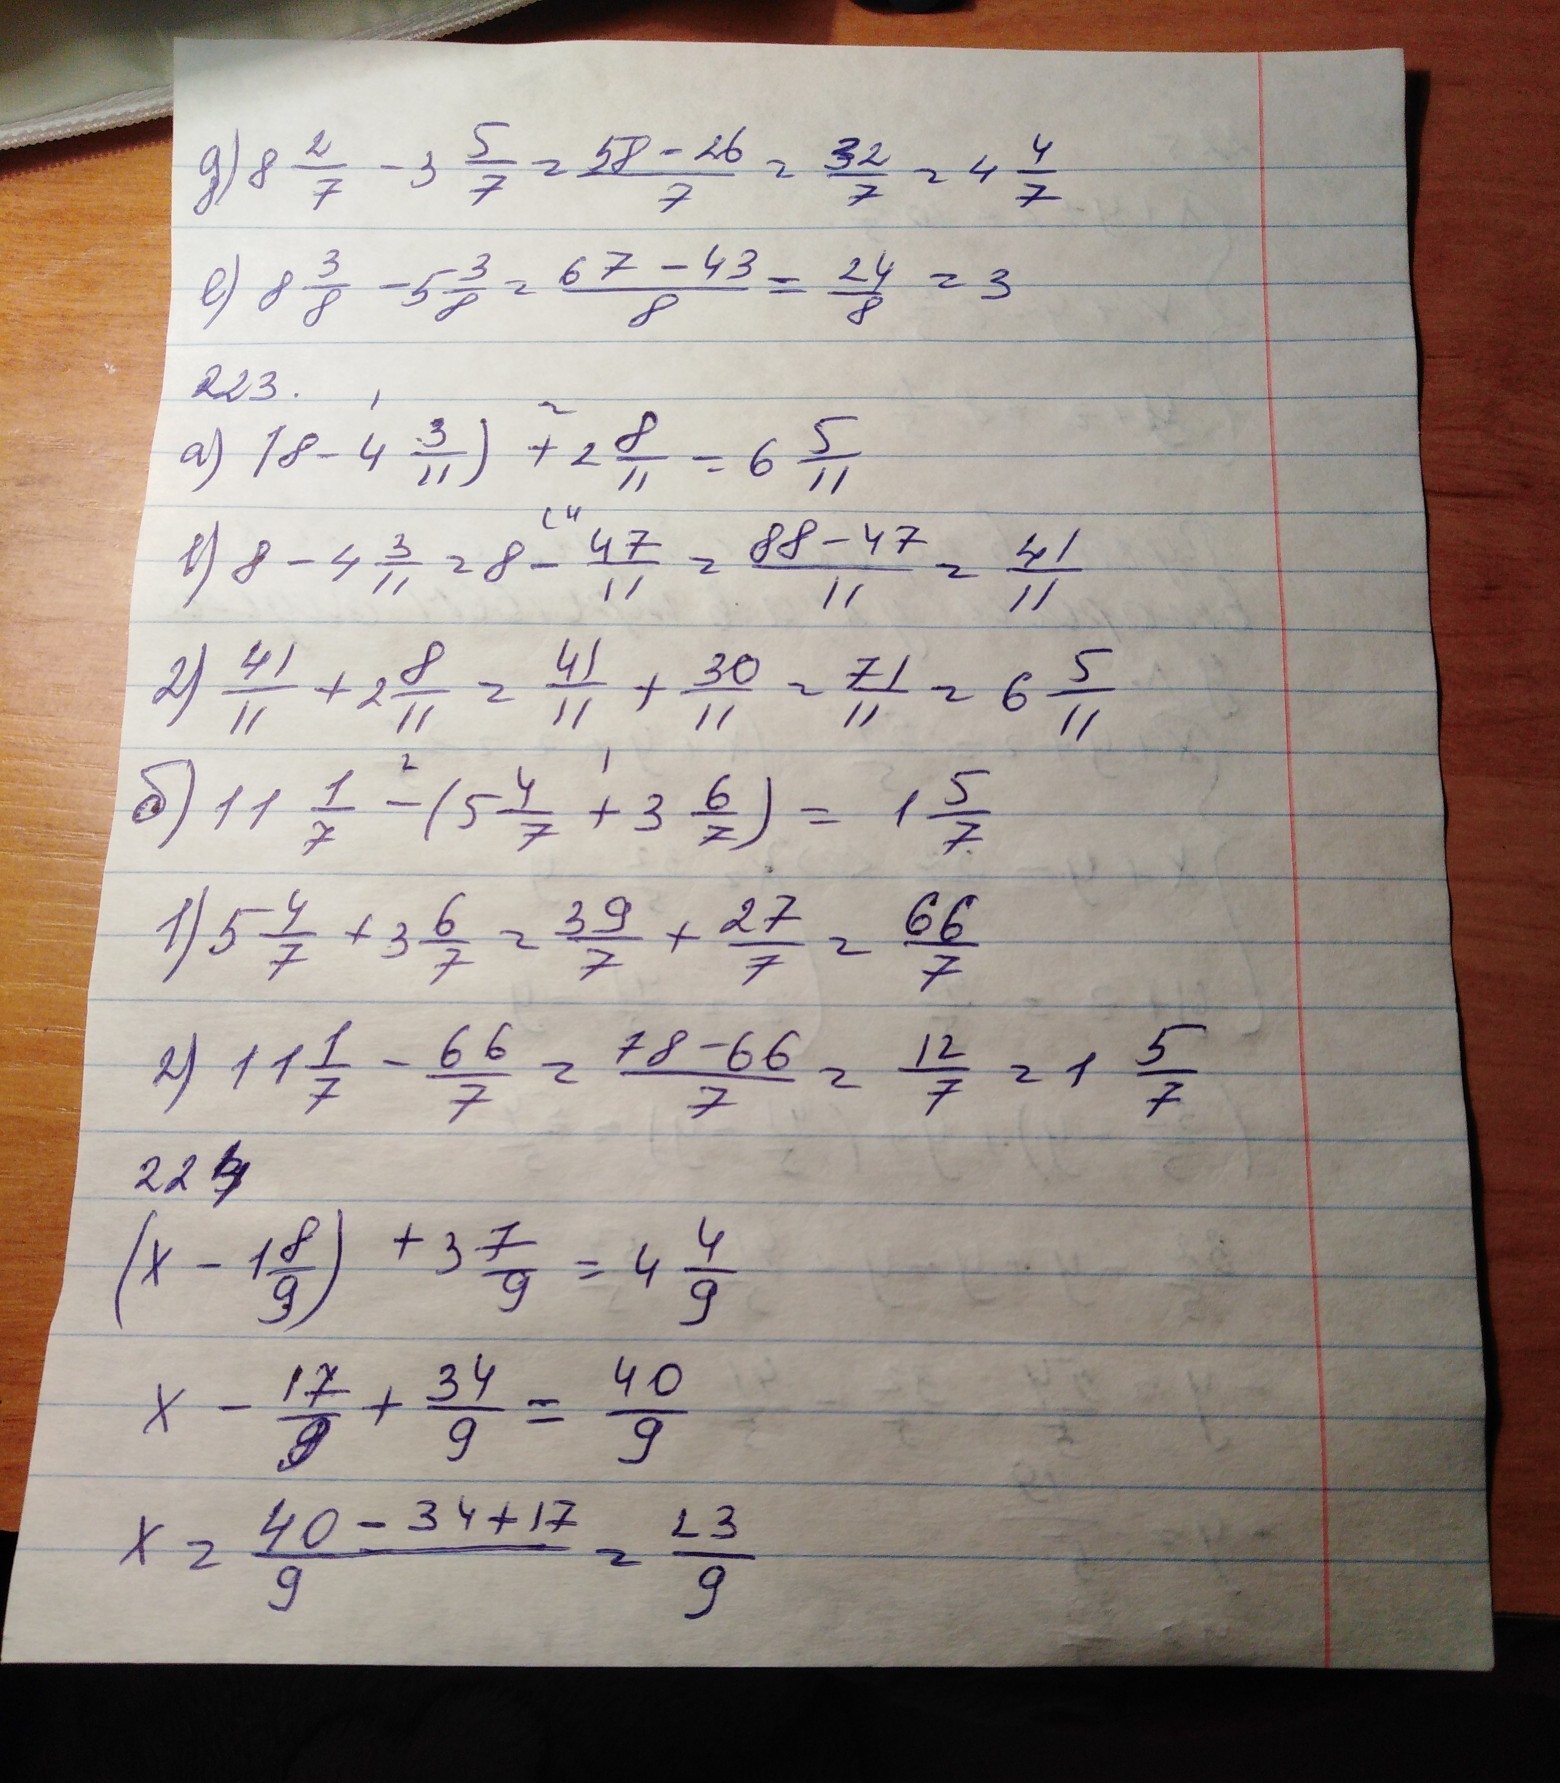 д) 8 2/7 - 3 5/7 = (58 - 26)/7 = 32/7 = 4 4/7
е) 8 3/8 - 5 3/8 = (67 - 43)/8 = 24/8 = 3
223.
1 2
а) (8 - 4 3/11) + 2 8/11 = 6 5/11
1) 8 - 4 3/11 = 8 - 47/11 = (88 - 47)/11 = 41/11
2) 41/11 + 2 8/11 = 41/11 + 30/11 = 71/11 = 6 5/11
2 1
б) 11 1/7 - (5 4/7 + 3 6/7) = 1 5/7
1) 5 4/7 + 3 6/7 = 39/7 + 27/7 = 66/7
2) 11 1/7 - 66/7 = (78 - 66)/7 = 12/7 = 1 5/7
224
(x - 1 8/9) + 3 7/9 = 4 4/9
x - 17/9 + 34/9 = 40/9
x = (40 - 34 + 17)/9 = 23/9